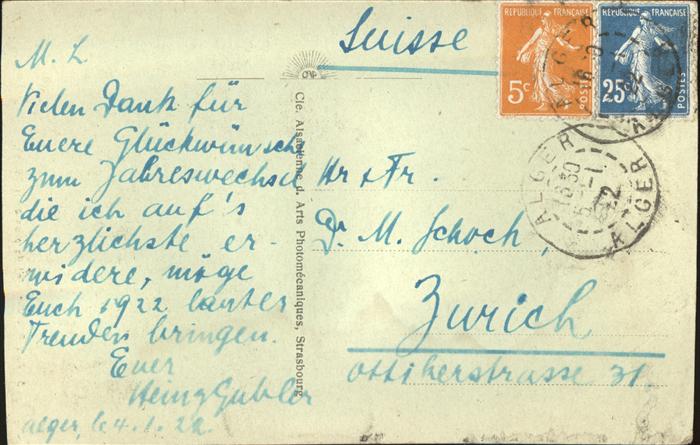 Suisse
M. L
Vielen Dank für
Euere Glückwünsche
zum Jahreswechsel
die ich auf's
herzlichste er-
widere, möge
Euch 1922 lauter
Freuden bringen.
Euer
Heinz Gubler
Alger, le 4.1.22.
Cie. Alsacienne d. Arts Photomécaniques, Strasbourg
REPUBLIQUE FRANÇAISE
5c
POSTES
REPUBLIQUE FRANÇAISE
25c
POSTES
ALGER
18 30
5 -1
22
ALGER
Hr & Fr.
Dr. M. Schoch,
Zurich
Ottikerstrasse 31.